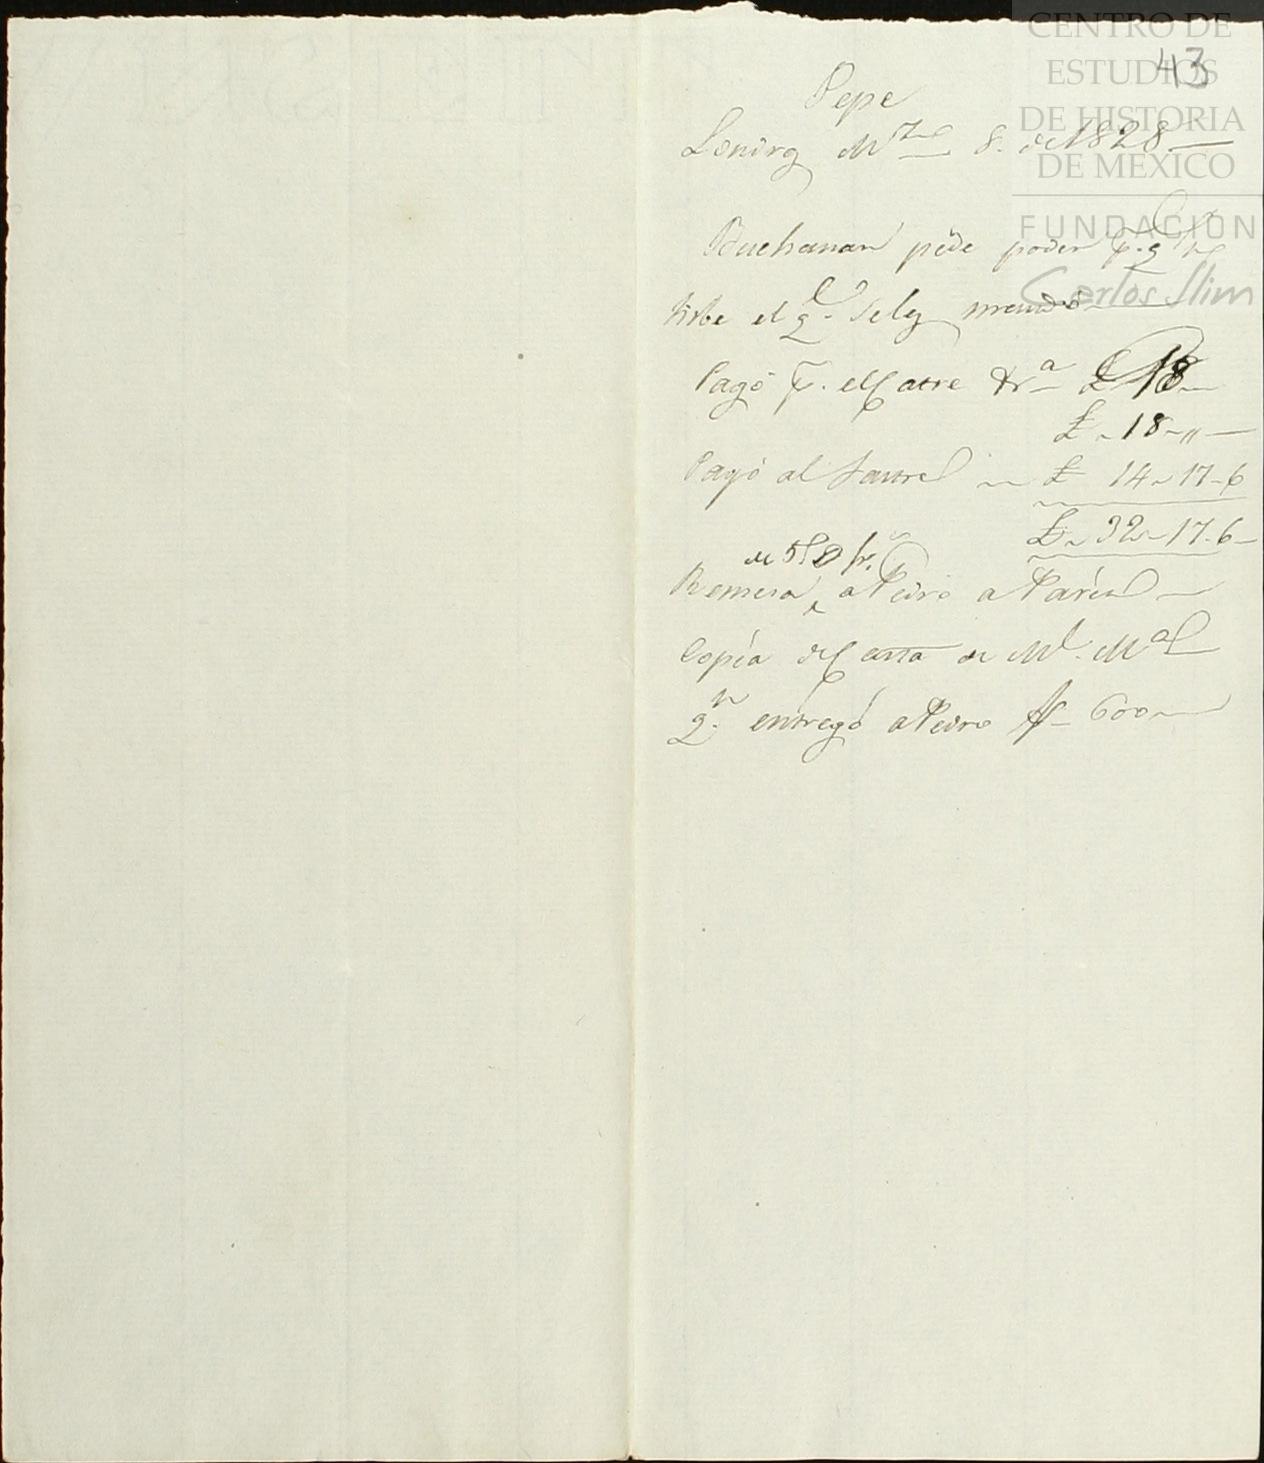 CENTRO DE
ESTUDIOS
DE HISTORIA
DE MEXICO
FUNDACIÓN
Carlos Slim
43
Pepe
Londrs Mzo 8. de 1828
Buchanan pide poder p.a q.e
el q.e se le
Pagó p.r el Catre &r.a £ 18
£ 18 "
Pagó al Sastre £ 14 17 6
£ 32 17 6
de 5 fr.
Remesa a Pedro a Paris
Copia de Carta de Ml. Mal
q.n entregó a Pedro 600